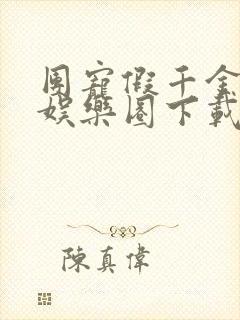 團寵假千金
娛樂圈下載
陳真偉